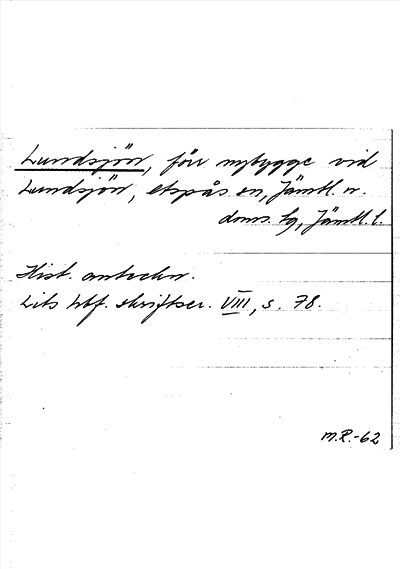 Lundsjön, förr nybygge vid
Lundsjön, etspås sn, Jämtl. n.
doms. hg, Jämtl. l.
Hist. anteckn.
Lits hbf. skriftser. VIII, s. 78.
M.R.-62